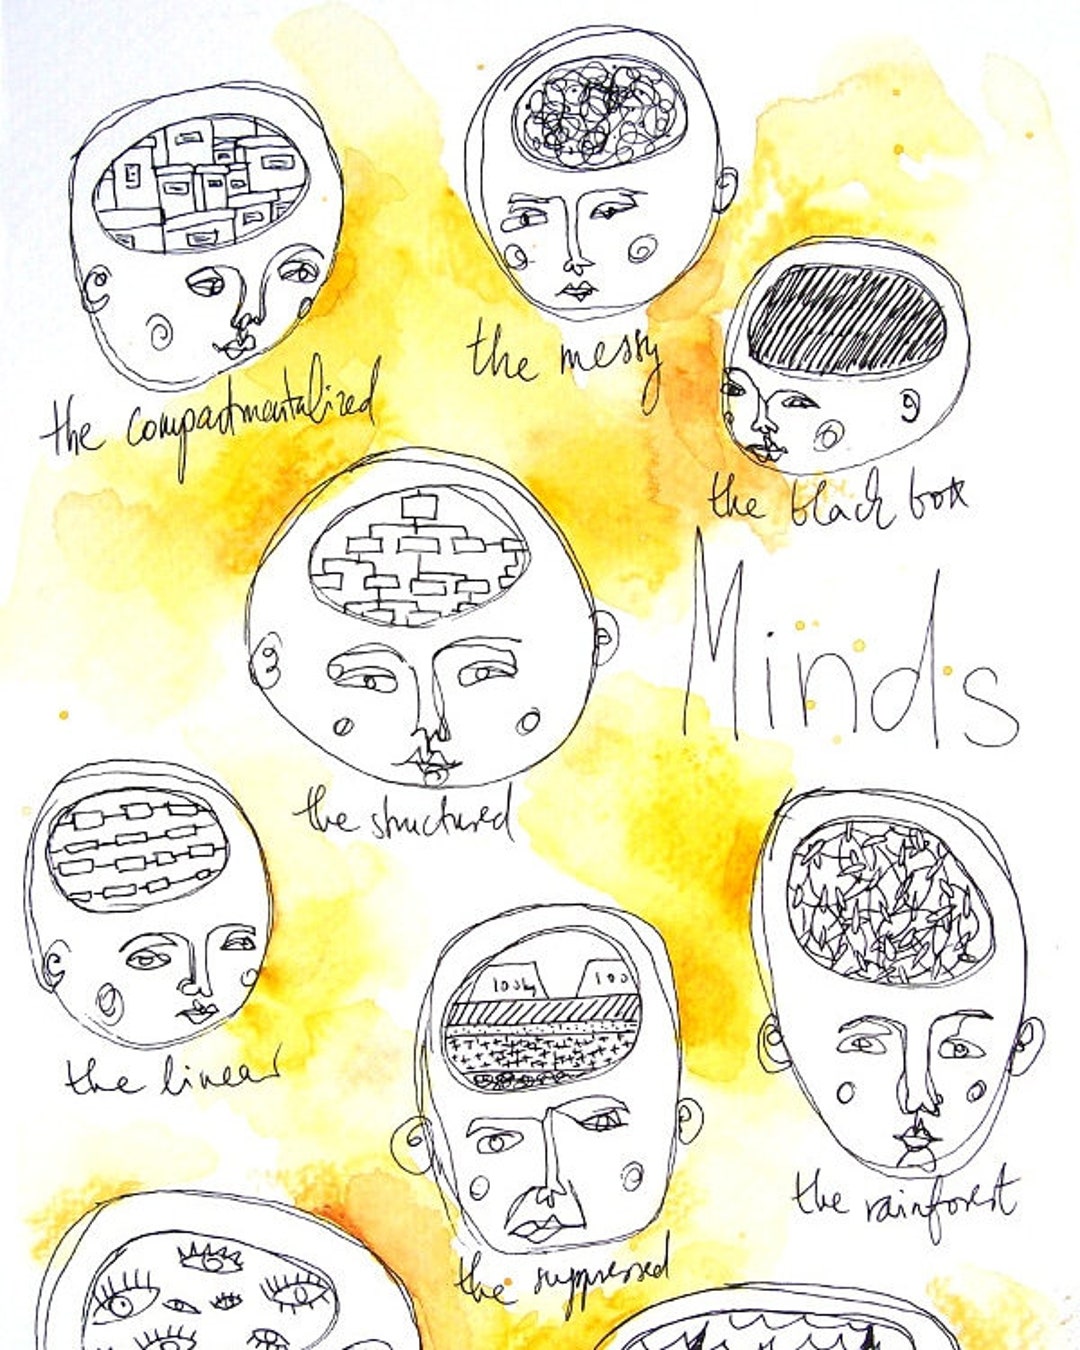 the messy
the compartmentalized
the black box
Minds
the structured
100kg
100
the linear
the rainforest
the suppressed